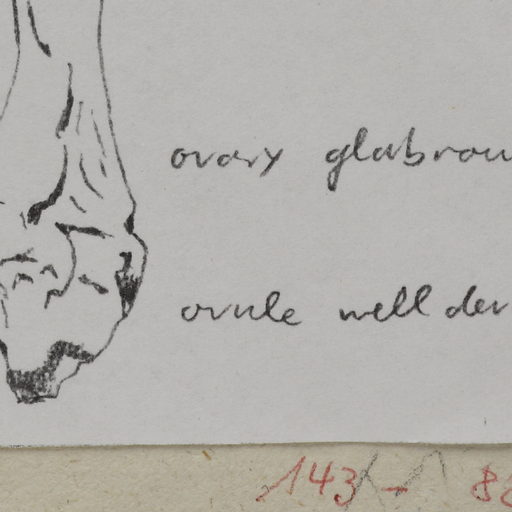 ovary glabrou
ovule well dev
143 - 88